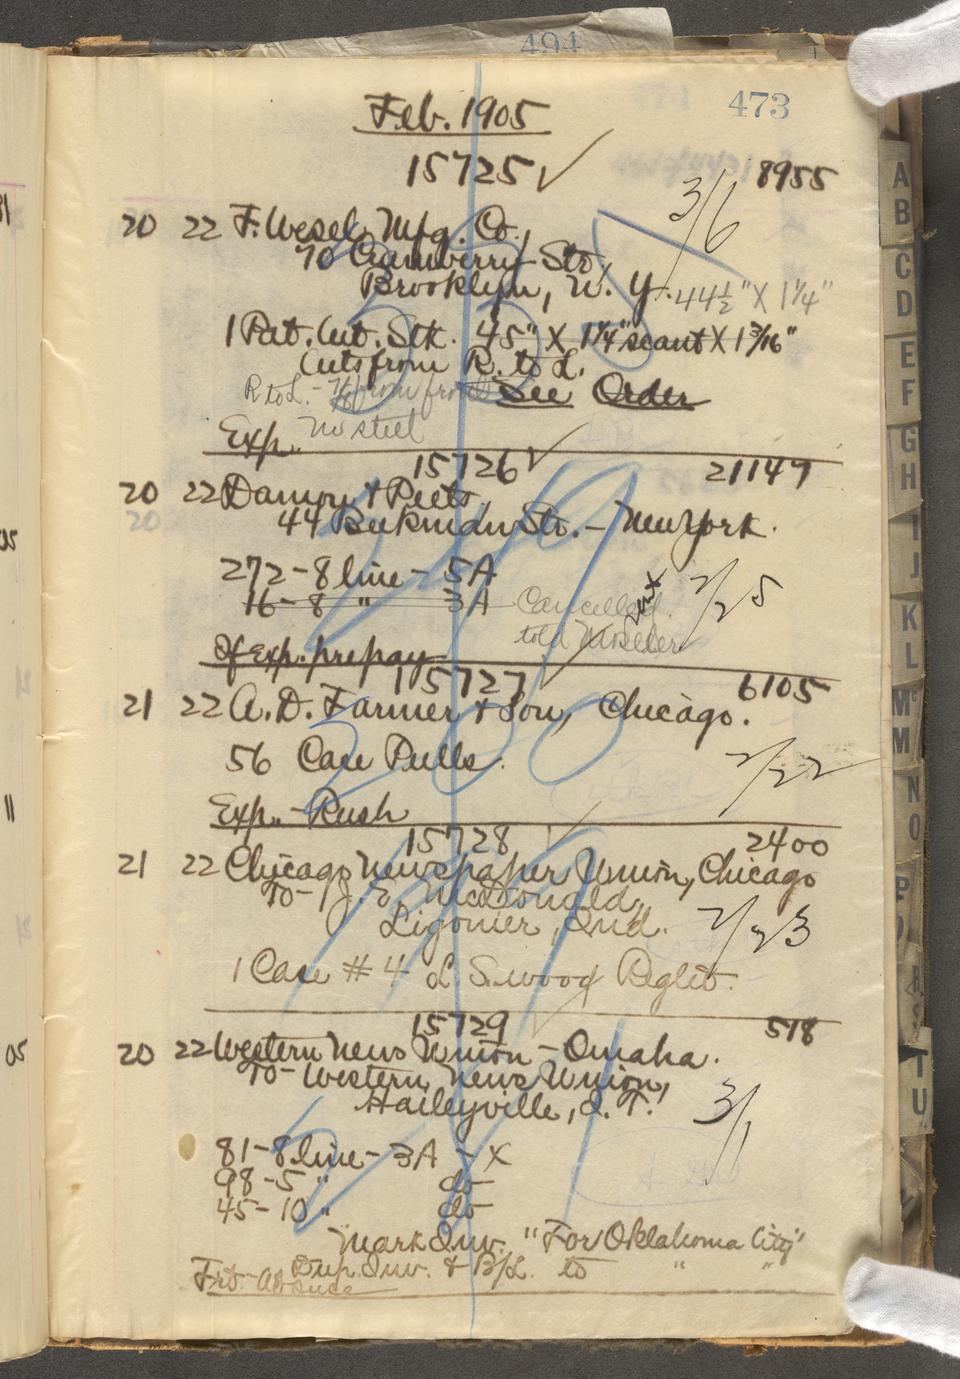 494
473
Feb. 1905
15725 ✓ 8955
20 22 F. Wesel Mfg. Co., 3/6
70 Cranberry St.,
Brooklyn, N. Y. 44½" X 1¼"
1 Pat. Cut. Stk. 45" X 1¼" scant X 1 3/16"
Cuts from R. to L.
R to L. - 7/8 from front See Order
Exp. No steel
15726 ✓ 21147
20 22 Damon & Peets,
20 44 Beekman St. - New York.
272 - 8 line - 5A 2/25
16 - 8 " 3A Cancelled.
told Moeller
If Exp. prepay
15727 ✓ 6105
21 22 A. D. Farmer & Son, Chicago.
56 Case Pulls. 2/22
Exp. - Rush
15728 ✓ 2400
21 22 Chicago Newspaper Union, Chicago
To - J. E. McDonald,
Ligonier, Ind. 2/23
1 Case # 4 L. S. wood Reglet.
15729 ✓ 518
20 22 Western News Union - Omaha.
To - Western News Union,
Haileyville, I. T. 3/1
81 - 8 line - 3A - X
98 - 5 " do
45 - 10 " do
Mark Inv. "For Oklahoma City"
Dup. Inv. & B/L. to " "
Frt.
A
B
C
D
E
F
G
H
I
J
K
L
Mc
M
N
O
P
R
S
T
U